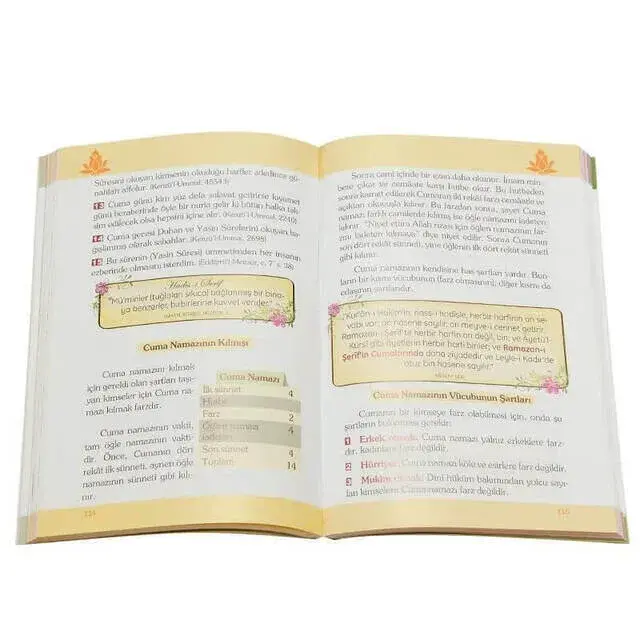 Sûresini okuyan kimsenin okuduğu harfler adedince gü-
nahları affolur. (Kenzü'l-Ummal, 4854 h)
13 Cuma günü kim yüz defa salavat getirirse kıyamet
günü beraberinde öyle bir nurla gelir ki bütün halka tak-
sim edilecek olsa hepsini içine alır. (Kenzü'l-Ummal, 2240)
14 Cuma gecesi Duhan ve Yasin Sûrelerini okuyan ba-
ğışlanmış olarak sabahlar. (Kenzü'l-Ummal, 2698)
15 Bu sûrenin (Yasin Sûresi) ümmetimden her insanın
ezberinde olmasını isterdim. (Eddürrü'l-Mensur, c. 7 s. 38)
Hadis-i Şerif
"Mü'minler (tuğlaları) sıkıca bağlanmış bir bina-
ya benzerler, birbirlerine kuvvet verirler."
Cuma Namazının Kılınışı
Cuma namazını kılmak
için gerekli olan şartları taşı-
yan kimseler için Cuma na-
mazı kılmak farzdır.
Cuma namazının vakti,
tam öğle namazının vakti-
dir. Önce, Cumanın dört
rekât ilk sünneti, aynen öğle
namazının sünneti gibi kılı-
nır.
Cuma Namazı
İlk sünnet 4
Hutbe
Farz 2
4
Son sünnet 4
Toplam 14
Sonra cami içinde bir ezan daha okunur. İmam min-
bere çıkar ve cemaate karşı hutbe okur. Bu hutbeden
sonra kamet edilerek Cumanın iki rekât farzı cemaatle ve
açıktan okuyuşla kılınır. Bu farzdan sonra, şayet Cuma
namazı farklı camilerde kılınmış ise öğle namazını iadeten
kılınır. "Niyet ettim Allah rızası için öğlen namazının far-
zını iadeten kılmaya" diye niyet edilir. Sonra Cumanın
son dört rekât sünneti, yine öğlenin ilk dört rekât sünneti
gibi kılınır.
Cuma namazının kendisine has şartları vardır. Bun-
ların bir kısmı vücubunun (farz olmasının); diğer kısmı da
edasının şartlarıdır.
"Kur'ân-ı Hakim'in, nass-ı hadisle, herbir harfinin on se-
vabı var; on hasene sayılır, on meyve-i cennet getirir.
Ramazan-ı Şerif'te herbir harfin on değil, bin; ve Ayetü'l-
Kürsî gibi âyetlerin herbir harfi binler; ve Ramazan-ı
Şerif'in Cumalarında daha ziyadedir ve Leyle-i Kadir'de
otuz bin hasene sayılır."
Cuma Namazının Vücubunun Şartları
Cumanın bir kimseye farz olabilmesi için, onda şu
şartların bulunması gerekir:
1 Erkek olmak. Cuma namazı yalnız erkeklere farz-
dır, kadınlara farz değildir.
2 Hürriyet. Cuma namazı köle ve esirlere farz değildir.
3 Mukim olmak. Dinî hüküm bakımından yolcu sayı-
lan kimselere Cuma namazı farz değildir.